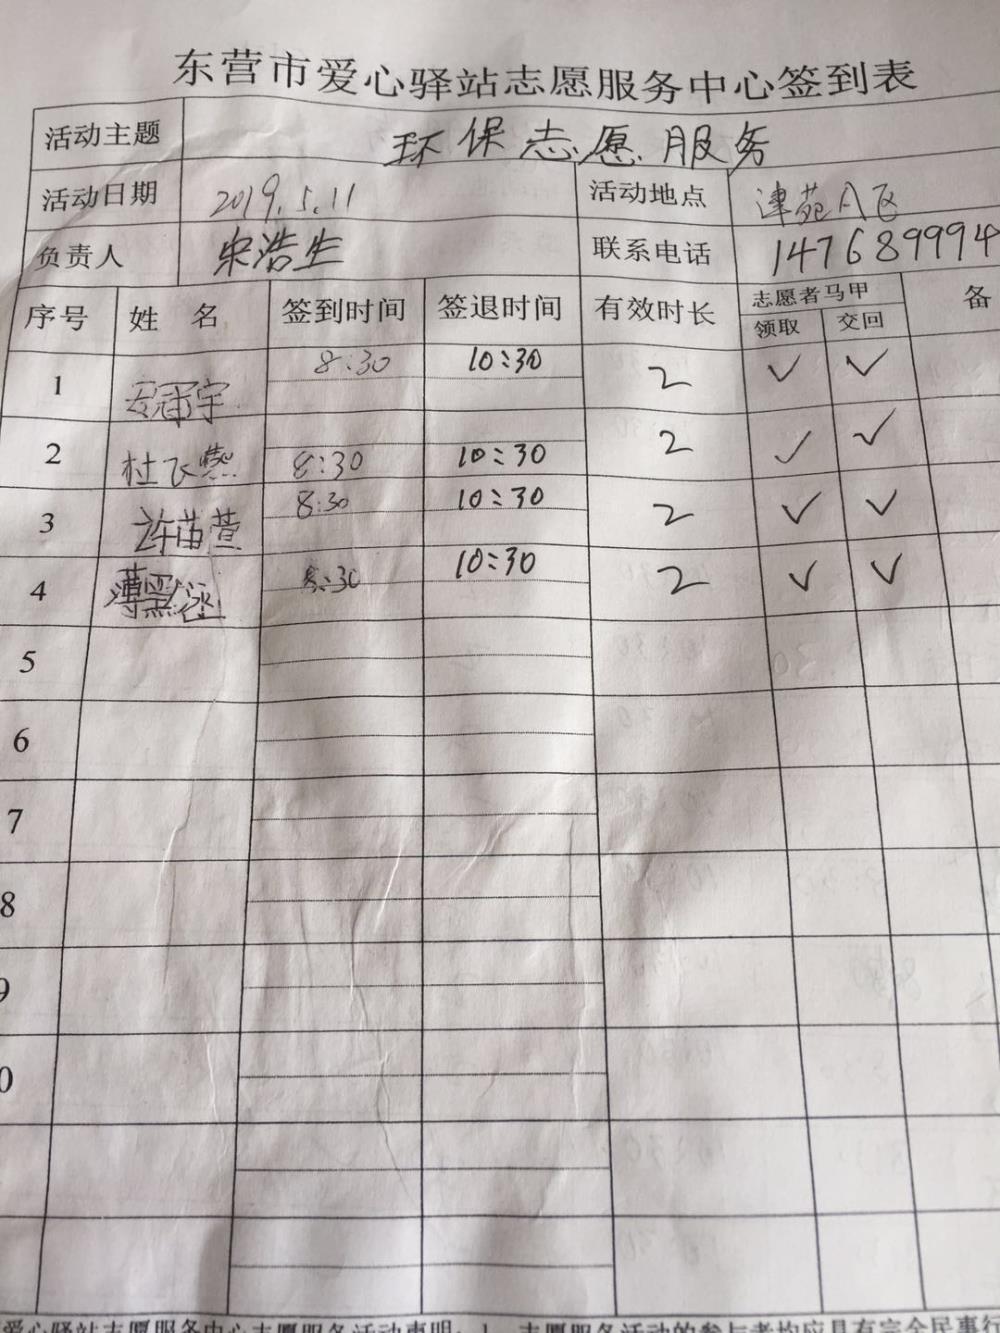 东营市爱心驿站志愿服务中心签到表
活动主题 环保志愿服务
活动日期 2019.5.11 活动地点 津苑A区
负责人 宋浩生 联系电话 147689994
序号 姓 名 签到时间 签退时间 有效时长 志愿者马甲 备
领取 交回
1 冠宇 8:30 10:30 2 ✓ ✓
2 杜飞燕 8:30 10:30 2 ✓ ✓
3 许苗萱 8:30 10:30 2 ✓ ✓
4 薄 8:30 10:30 2 ✓ ✓
5
6
7
8
9
0
爱心驿站志愿服务中心志愿服务活动声明：1、志愿服务活动的参与者均应具有完全民事行